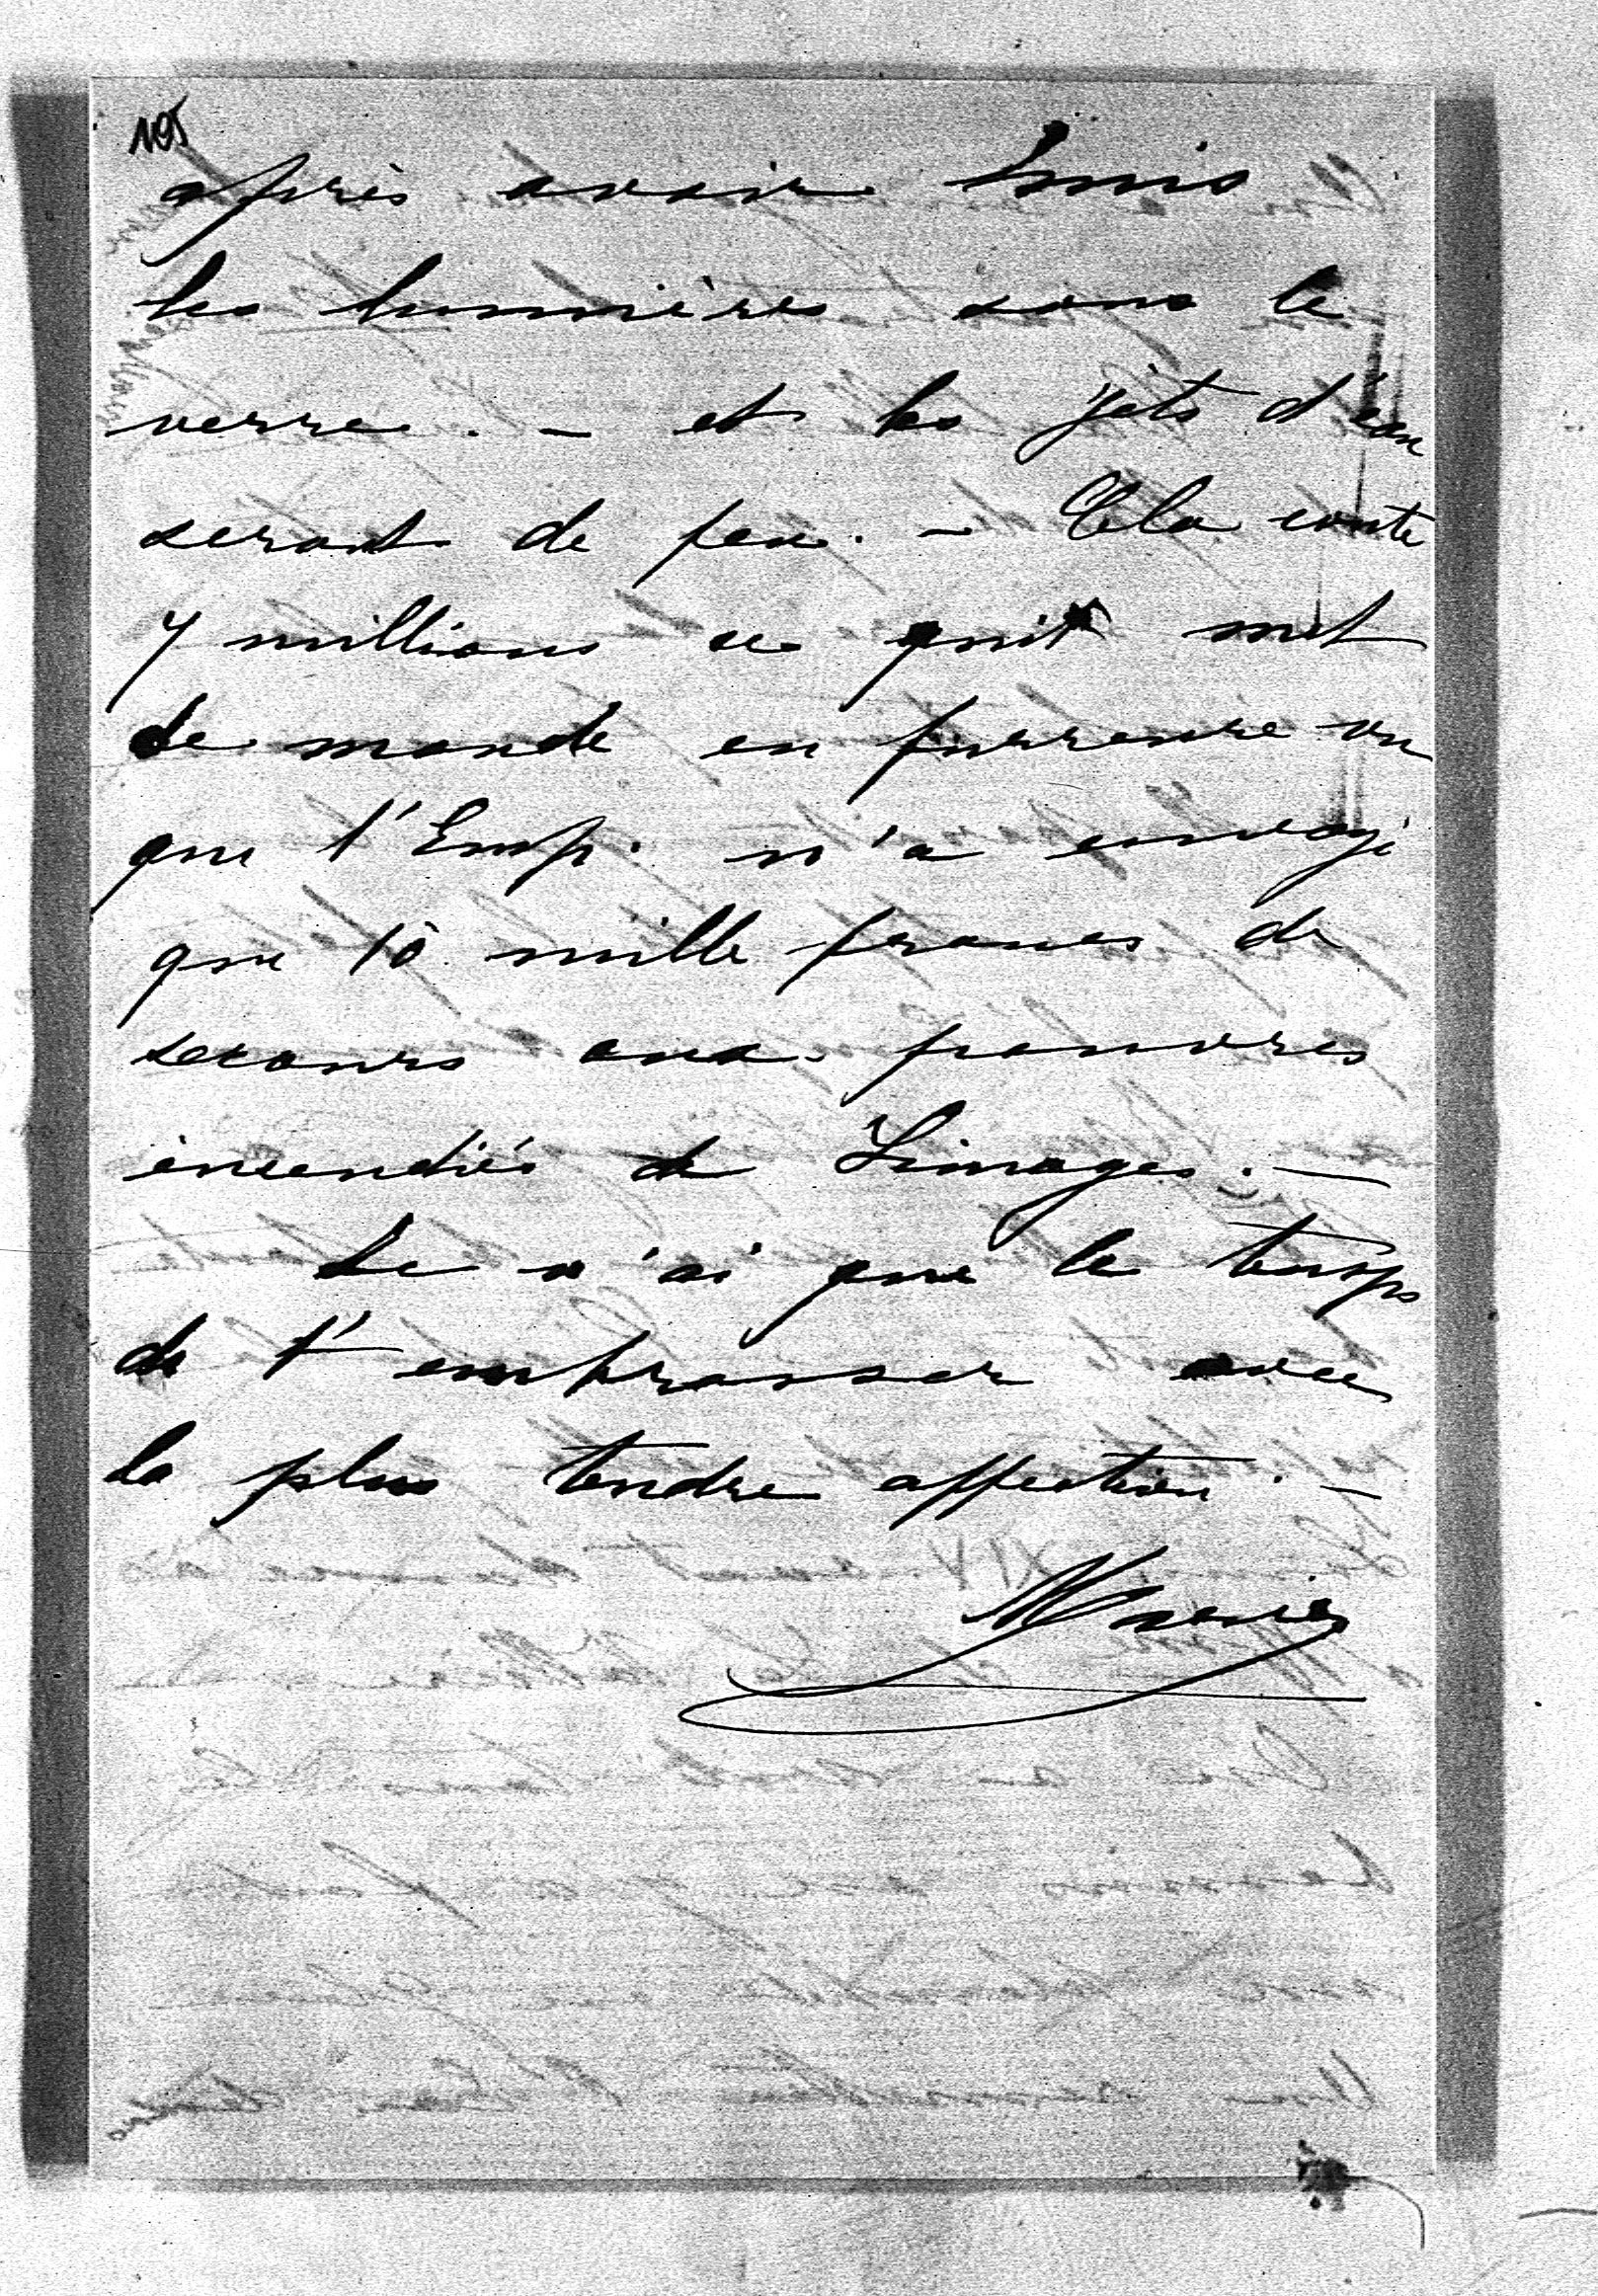 105
après avoir mis
les lumières sous le
verre. – et les jets d'eau
seront de feu. – Cela coute
7 millions ce qui met
le monde en fureur vu
que l'Emp. n'a envoyé
que 10 mille francs de
secours aux pauvres
incendiés de Limoges. –
Je n'ai que le temps
de t'embrasser avec
la plus tendre affection. –